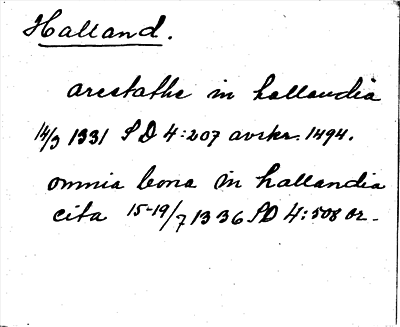 Halland.
arestathe in hallandia
14/3 1331 SD 4:207 avskr. 1494.
omnia bona in hallandia
cita 15-19/7 1336 SD 4:508 or.